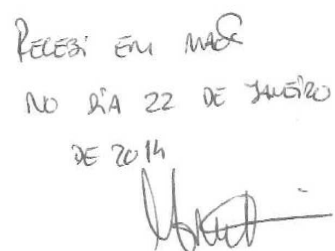 RECEBI EM MÃOS
NO DIA 22 DE JANEIRO
DE 2014